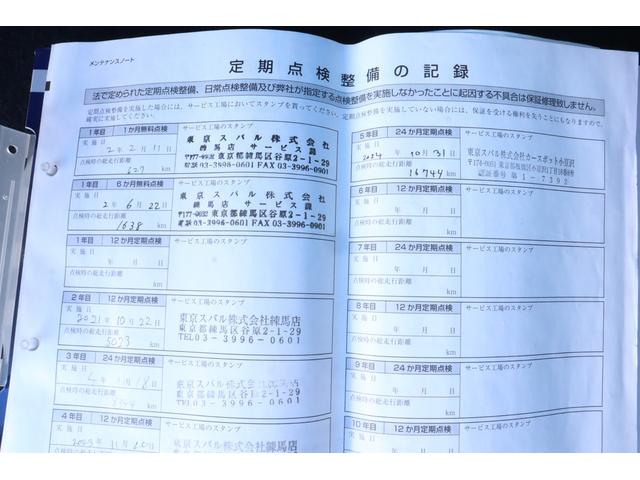 メンテナンスノート
定期点検整備の記録
法で定められた定期点検整備、日常点検整備及び弊社が指定する点検整備を実施しなかったことに起因する不具合は保証修理致しません。
定期点検整備を実施した場合には、サービス工場においてスタンプを貰ってください。定期点検整備を実施していない場合には、保証を受ける権利を失うこともありますので、
確実に実施してください。
1年目 1か月無料点検
サービス工場のスタンプ
実施日
2年2月11日
点検時の総走行距離
627 km
東京スバル株式会社
練馬店 サービス課
〒177-0032 東京都練馬区谷原2-1-29
電話03-3996-0601 FAX 03-3996-0901
1年目 6か月無料点検
サービス工場のスタンプ
実施日
2年6月22日
点検時の総走行距離
1638 km
東京スバル株式会社
練馬店 サービス課
〒177-0032 東京都練馬区谷原2-1-29
電話03-3996-0601 FAX 03-3996-0901
1年目 12か月定期点検
サービス工場のスタンプ
実施日
年 月 日
点検時の総走行距離
km
2年目 12か月定期点検
サービス工場のスタンプ
実施日
2021年10月22日
点検時の総走行距離
5023 km
東京スバル株式会社練馬店
東京都練馬区谷原2-1-29
TEL03-3996-0601
3年目 24か月定期点検
サービス工場のスタンプ
実施日
点検時の総走行距離
km
東京都練馬区谷原2-1-29
TEL03-3996-0601
4年目 12か月定期点検
サービス工場のスタンプ
実施日
東京スバル株式会社練馬店
東京都練馬区谷原2-1-29
5年目 24か月定期点検
サービス工場のスタンプ
実施日
2024年10月31日
点検時の総走行距離
16744 km
東京スバル株式会社カースポット小豆沢
6年目 12か月定期点検
サービス工場のスタンプ
実施日
年 月 日
点検時の総走行距離
km
7年目 24か月定期点検
サービス工場のスタンプ
実施日
年 月 日
点検時の総走行距離
km
8年目 12か月定期点検
サービス工場のスタンプ
実施日
年 月 日
点検時の総走行距離
km
9年目 24か月定期点検
サービス工場のスタンプ
実施日
年 月 日
点検時の総走行距離
km
10年目 12か月定期点検
サービス工場のスタンプ
実施日
年 月 日